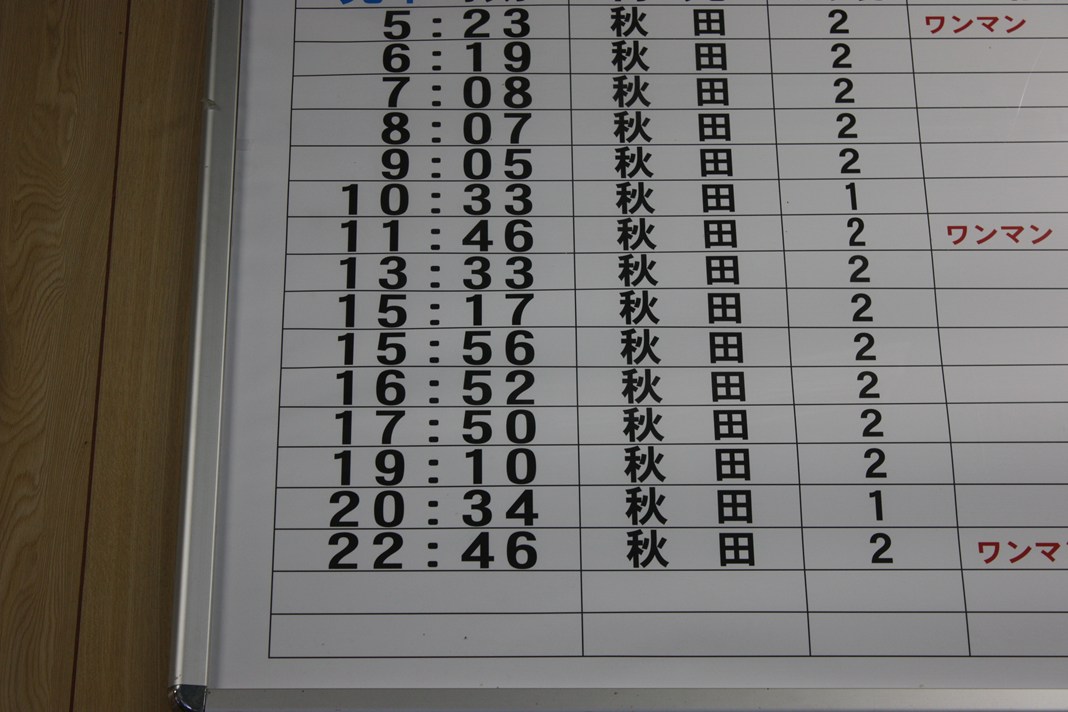 5:23 秋田 2 ワンマン
6:19 秋田 2
7:08 秋田 2
8:07 秋田 2
9:05 秋田 2
10:33 秋田 1
11:46 秋田 2 ワンマン
13:33 秋田 2
15:17 秋田 2
15:56 秋田 2
16:52 秋田 2
17:50 秋田 2
19:10 秋田 2
20:34 秋田 1
22:46 秋田 2 ワンマ